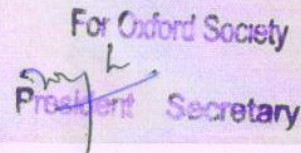 For Oxford Society
President Secretary